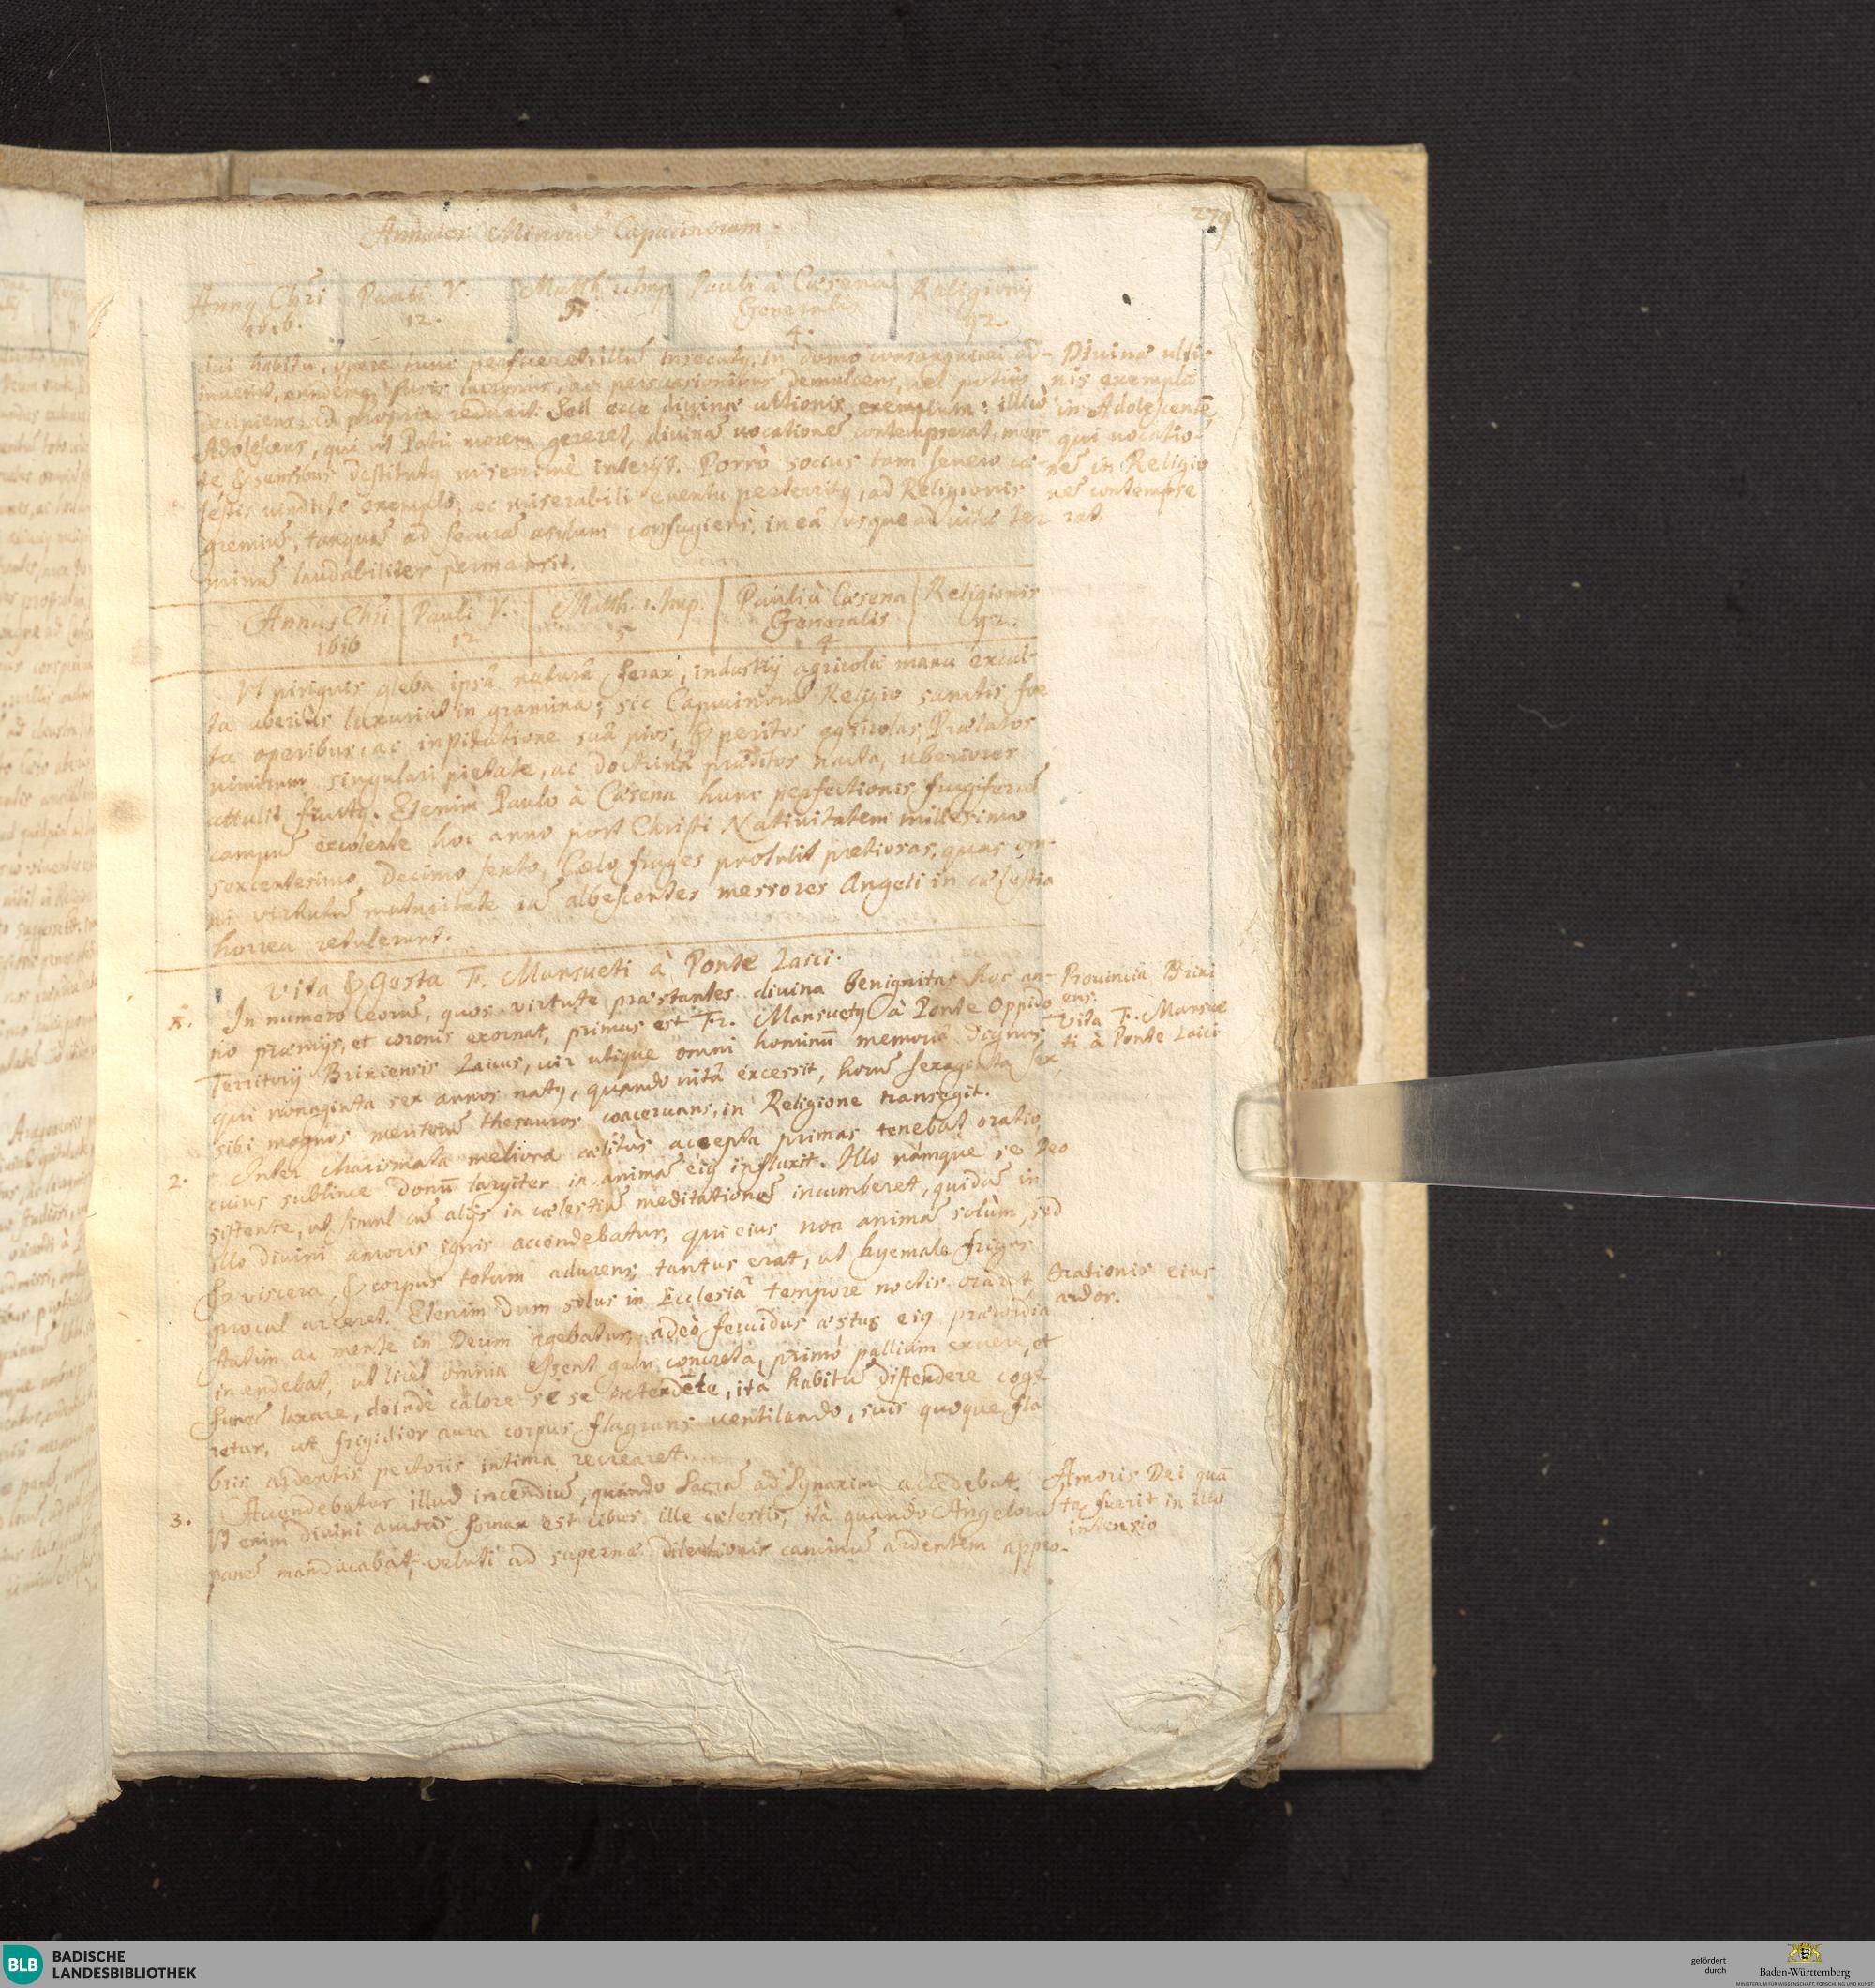 Annales Minorũ Capucinorum.
279
Annꝯ Chři
1616.
Pauli V.
12.
Matth. 1. Imp.
5
Pauli à Cæsena
Generalis
4.
Religionis
92.
sui habitu, opere tunc perficeret, illũ insecutꝯ, in domo consanguinei ad-
inuenit, eundemq; suis lacrymis, ac persuasionibus demulcens, vel potiùs
decipiens, ad propria reduxit. Sed ecce diuinæ ultionis exemplum: illicò
Adolescens, qui ut Patri morem gereret, diuinã uocationẽ contempserat, men-
te & sensibus destitutꝯ miserrimè interijt. Porrò socius tam seuero cæ-
lestis uindictæ exemplo, ac miserabili euentu perterritꝯ, ad Religionis
gremiũ, tanquã ad securũ asylum confugiens, in eâ usque ad uitæ ter
minũ laudabiliter permansit.
Diuinæ ultio
nis exemplũ
in Adolescentẽ
qui uocatio-
nẽ in Religio
nẽ contempse
rat.
Annus Chři
1616
Pauli V.
12
Matth. 1. Imp.
5
Pauli à Cæsena
Generalis
4
Religionis
92.
Vt pinguis gleba ipsâ naturâ ferax, industrij agricolæ manu excul-
ta uberiùs luxuriat in gramina; sic Capucinorũ Religio sanctis foe
ta operibus, ac inspiratione suâ pios, & peritos agricolas, Prælatos
nimirum singulari pietate, ac doctrinâ præditos nacta, uberiores
attulit fructꝯ. Etenim Paulo à Cæsena hunc perfectionis frugiferũ
campũ excolente hoc anno post Christi Natiuitatem millesimo
sexcentesimo decimo sexto, Cælo fruges protulit pretiosas, quas om-
ni virtutũ maturitate iã albescentes messores Angeli in cælestia
horrea retulerunt.
Vita & Gesta F. Mansueti à Ponte Laici.
1. In numero eorũ, quos virtute præstantes diuina benignitas hoc an-
no præmijs, et coronis exornat, primus est Fr. Mansuetꝯ à Ponte Oppido
Territorij Brixiensis Laicus, uir utique omni hominũ memoriâ dignus,
qui nonaginta sex annos natꝯ, quando uitâ excessit, horũ sexaginta sex,
sibi magnos meritorũ thesauros coaceruans, in Religione transegit.
Prouincia Brixi
ens.
Vita F. Mansue
ti à Ponte Laici
2. Inter charismata meliora cælitùs accepta primas tenebat oratio,
cuius sublime donũ largiter in animã eiꝯ influxit. Illo námque se Deo
sistente, ut simul cũ alijs in cælestiũ meditationẽ incumberet, quidã in
illo diuini amoris ignis accendebatur, qui eius non animã solùm, sed
& viscera, & corpus totum adurens, tantus erat, ut hyemale frigus
procul arceret. Etenim dum solus in Ecclesiâ tempore noctis oraret,
statim ac mente in Deum agebatur, adeò feruidus æstus eiꝯ præcordia
incendebat, ut licèt omnia essent gelu concreta, primò pallium exuere, et
funẽ laxare, deindè calore se se extendẽte, ità habitũ distendere coge
retur, ut frigidior aura corpus flagrans uentilando, suis quoque fla
bris ardentis pectoris intima recrearet.
Orationis eius
ardor.
3. Accendebatur illud incendiũ, quando Sacrã ad Synaxim accedebat.
Vt enim diuini amoris fornax est cibus ille cælestis, ità quando Angelorũ
panẽ manducabat, veluti ad supernæ dilectionis caminũ ardentem appro-
Amoris Dei quã
ta fuerit in illo
intensio
BLB
BADISCHE
LANDESBIBLIOTHEK
gefördert
durch
Baden-Württemberg
MINISTERIUM FÜR WISSENSCHAFT, FORSCHUNG UND KUNST